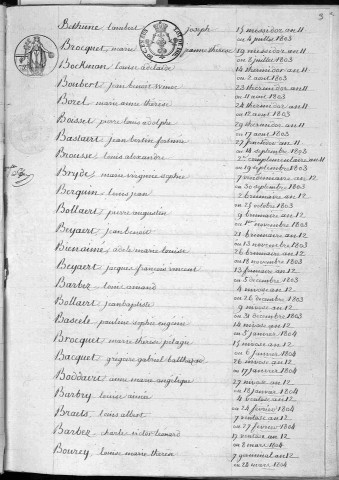 3
Bethune lambert joseph 15 messidor an 11
ou 4 juillet 1803
Brocquet, marie jeanne thérèse 19 messidor an 11
ou 8 juillet 1803
Bockman louise adelaide 14 thermidor an 11
ou 2 aout 1803
Boubert jean benoit 23 thermidor an 11
ou 11 aout 1803
Bozel marie anne thérèse 24 thermidor an 11
ou 12 aout 1803
Boisset pierre louis adolphe
ou 17 aout 1803
Bastaert jean bertin fortuné 27 fructidor an 11
ou 14 septembre 1803
Brousse louis alexandre 2e complementaire an 11
ou 19 septembre 1803
Bryde marie virginie sophie 7 vendemiaire an 12
ou 30 septembre 1803
Berquin louis jean 2 brumaire an 12
ou 25 octobre 1803
Bollaert pierre augustin 9 brumaire an 12
ou 1er novembre 1803
Beyaert jean benoit 21 brumaire an 12
ou 13 novembre 1803
Bienaimé adele marie louise 26 brumaire an 12
ou 18 novembre 1803
Beyaert jacques francois vincent 13 frimaire an 12
ou 5 decembre 1803
Barbez louis amand 4 nivose an 12
ou 26 decembre 1803
Bollaert jean baptiste 9 nivose an 12
ou 31 decembre 1803
Bascele pauline sophie eugénie 14 nivose an 12
ou 5 janvier 1804
Brocquet marie thérèse pelagie 15 nivose an 12
ou 6 janvier 1804
Bacquet gregoire gabriel balthazar 26 nivose an 12
ou 17 janvier 1804
Boddaert anne marie angelique 27 nivose an 12
ou 18 janvier 1804
Barbry louise aimée 4 ventose an 12
ou 24 fevrier 1804
Braets louis albert 7 ventose an 12
ou 27 fevrier 1804
Barbez charles victor leonard 17 ventose an 12
ou 8 mars 1804
Bourey louise marie thérèse 7 germinal an 12
ou 28 mars 1804